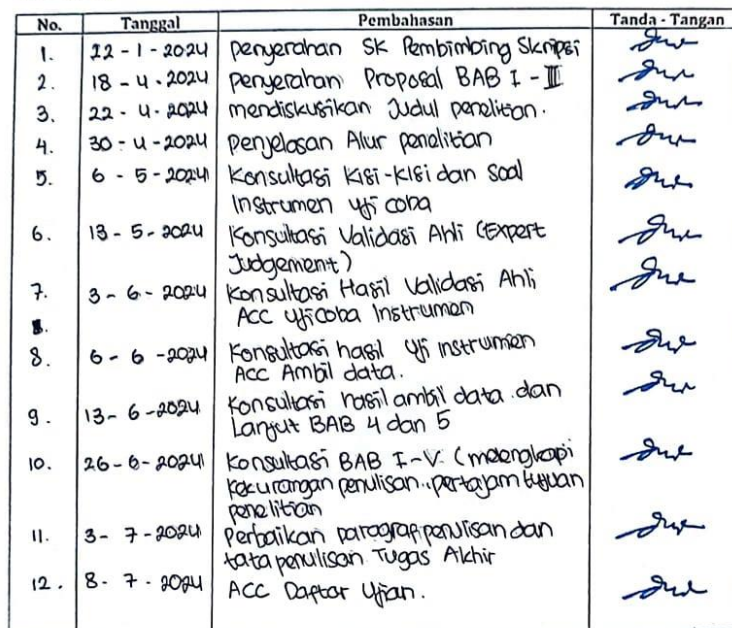 No. Tanggal Pembahasan Tanda - Tangan
1. 22 - 1 - 2024 penyerahan SK Pembimbing Skripsi
2. 18 - 4 - 2024 penyerahan Proposal BAB I - III
3. 22 - 4 - 2024 mendiskusikan Judul penelitian.
4. 30 - 4 - 2024 penjelasan Alur penelitian
5. 6 - 5 - 2024 Konsultasi Kisi-Kisi dan Soal
Instrumen Uji coba
6. 13 - 5 - 2024 Konsultasi Validasi Ahli (Expert
Judgement)
7. 3 - 6 - 2024 Konsultasi Hasil Validasi Ahli
ACC Ujicoba Instrumen
8. 6 - 6 - 2024 Konsultasi hasil Uji instrumen
ACC Ambil data.
9. 13 - 6 - 2024 Konsultasi hasil ambil data dan
Lanjut BAB 4 dan 5
10. 26 - 6 - 2024 Konsultasi BAB I - V (melengkapi
kekurangan penulisan, pertajam tujuan
penelitian
11. 3 - 7 - 2024 Perbaikan paragraf penulisan dan
tata penulisan Tugas Akhir
12. 8 - 7 - 2024 ACC Daftar Ujian.